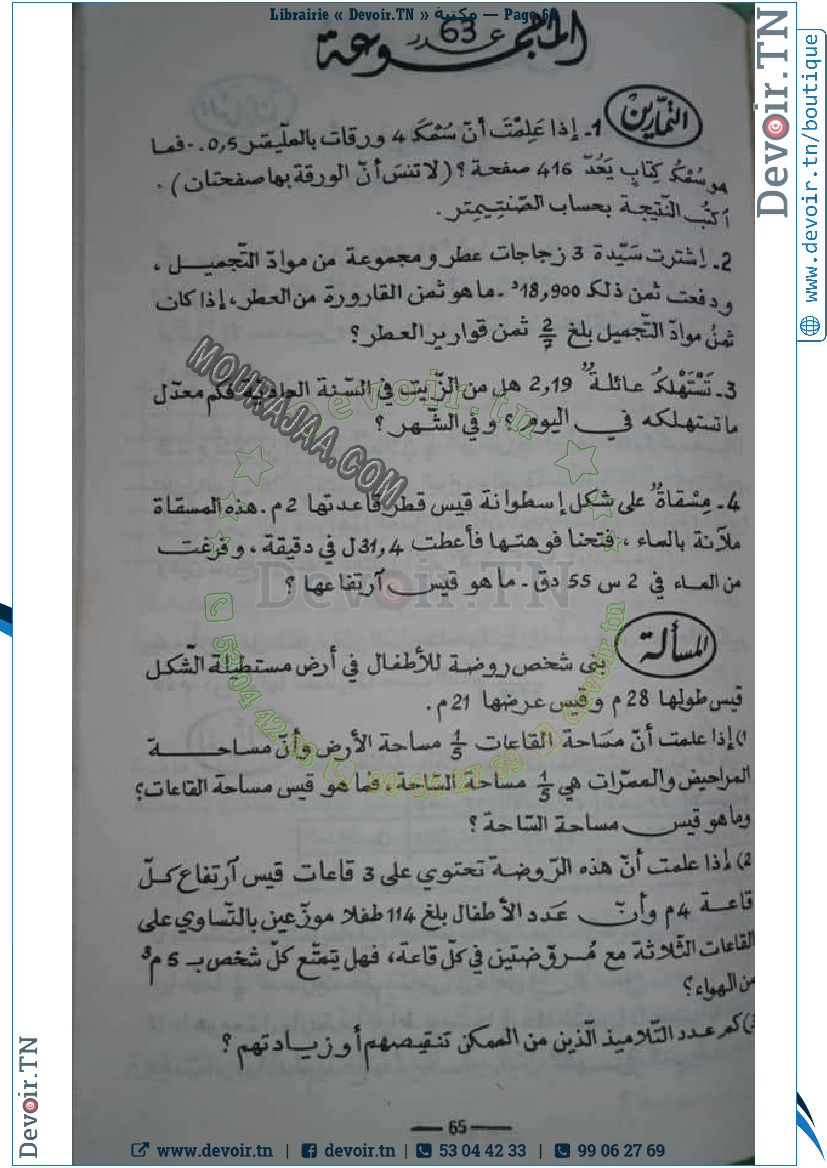 Librairie « Devoir.TN » مكتبة — Page 64
المجموعة عدد 63
التمارين
1ـ إذا عَلِمْتَ أنّ سُمْكَ 4 ورقات بالملّيمتر 0,5 .ـ فما
هو سُمْكُ كِتَابٍ يَعُدّ 416 صفحة ؟ (لا تنسَ أنّ الورقة بها صفحتان) .
أكتُب النّتيجة بحساب الصّنتيمتر .
2ـ إشترت سَيّدة 3 زجاجات عطر و مجموعة من موادّ التّجميل ،
و دفعت ثمن ذلك 18,900د ـ ما هو ثمن القارورة من العطر ، إذا كان
ثمنُ موادّ التّجميل بلغ 2/7 ثمن قوارير العطر ؟
3ـ تَسْتَهْلِكُ عائلة 2,19 هل من الزّيت في السّنة العادية فكم معدّل
ما تستهلكه في اليوم ؟ و في الشّهر ؟
4ـ مِسْقاة على شكل إسطوانة قيس قطر قاعدتها 2م . هذه المسقاة
ملآنة بالماء ، فتحنا فوهتها فأعطت 31,4ل في دقيقة ، و فرغت
من الماء في 2 س 55 دق ـ ما هو قيس آرتفاعها ؟
المسألة
بنى شخص روضة للأطفال في أرض مستطيلة الشّكل
قيس طولها 28م و قيس عرضها 21م .
1) إذا علمت أنّ مَسَاحة القاعات 1/5 مساحة الأرض وأنّ مساحة
المراحيض والممرّات هي 1/5 مساحة السّاحة ، فما هو قيس مساحة القاعات ؟
وما هو قيس مساحة السّاحة ؟
2) إذا علمت أنّ هذه الرّوضة تحتوي على 3 قاعات قيس آرتفاع كلّ
قاعة 4م وأنّ عَدد الأطفال بلغ 114 طفلا موزّعين بالتّساوي على
القاعات الثّلاثة مع مُروّضتين في كلّ قاعة ، فهل يتمتّع كلّ شخص بـ 5م3
من الهواء ؟
3) كم عدد التّلاميذ الّذين من الممكن تنقيصهم أو زيادتهم ؟
65
MOURAJAA.COM
devoir.tn
Devoir.TN
53 04 42 33 99 06 27 69 devoir.tn
Devoir.TN
www.devoir.tn/boutique
Devoir.TN
www.devoir.tn | devoir.tn | 53 04 42 33 | 99 06 27 69